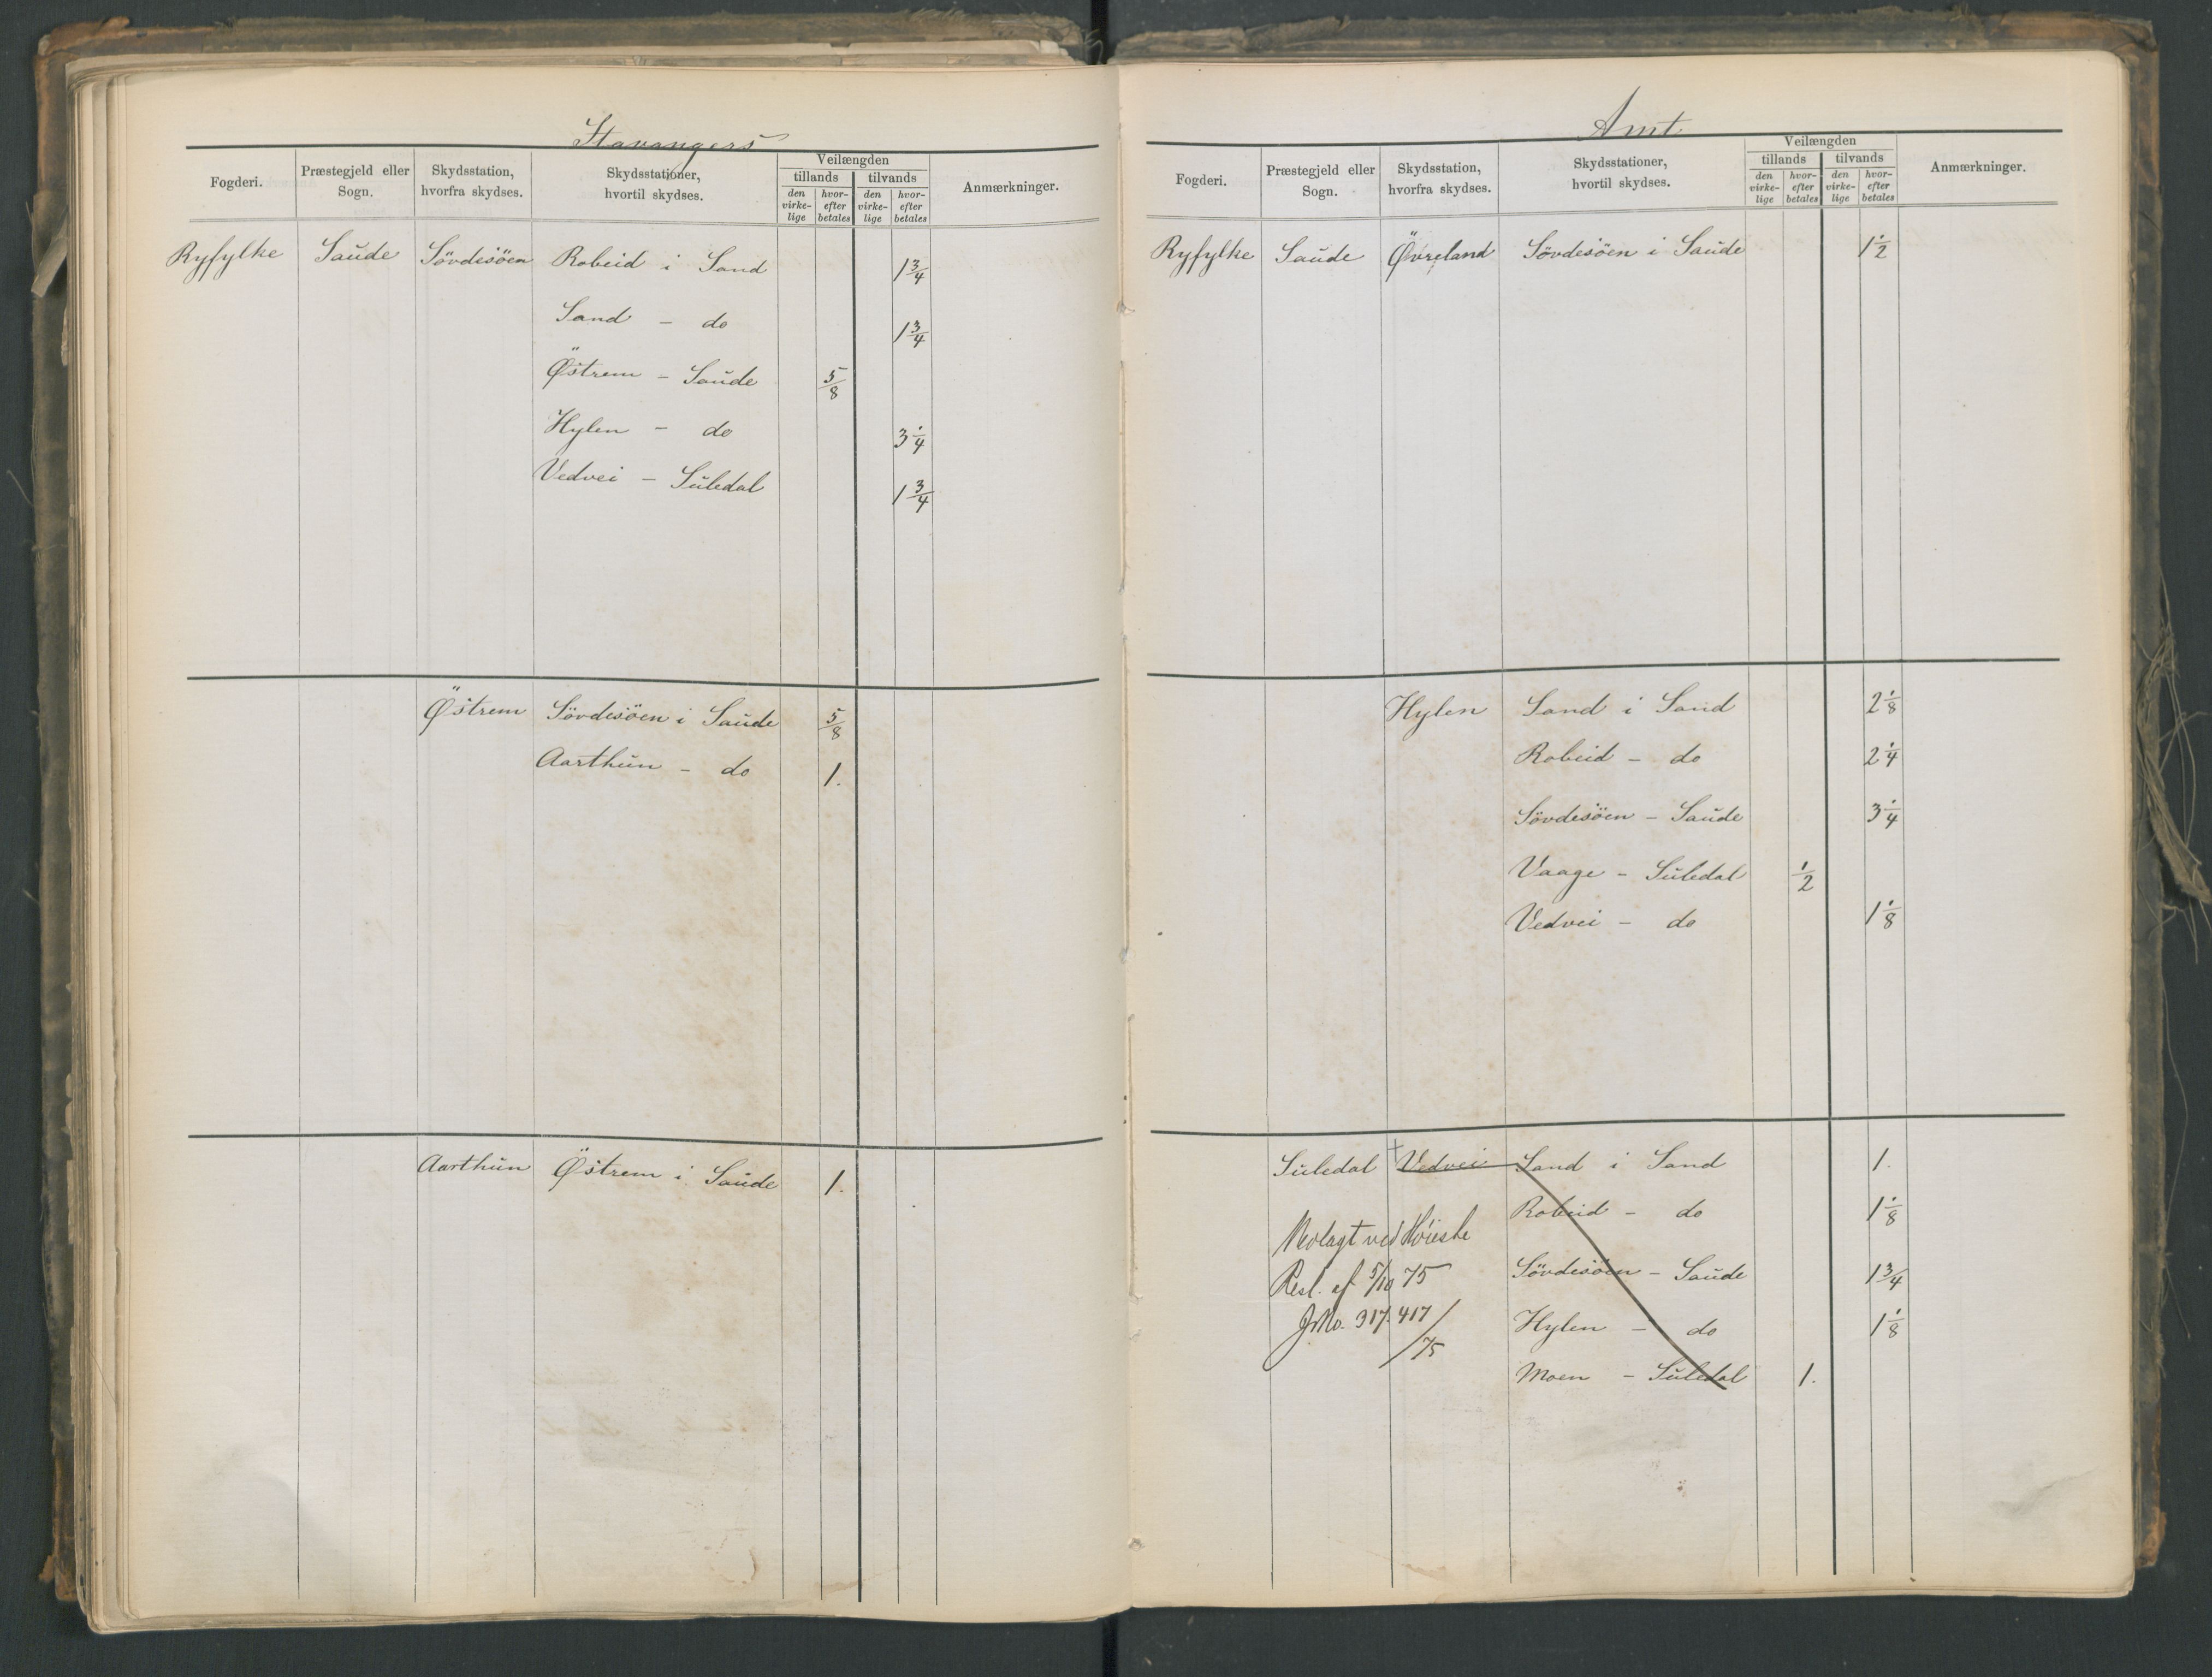 Stavangers
Fogderi. Præstegjeld eller Sogn. Skydsstation, hvorfra skydses. Skydsstationer, hvortil skydses. Veilængden tillands tilvands den virkelige hvorefter betales den virkelige hvorefter betales Anmærkninger.
Ryfylke Saude Sövdesöen Robeid i Sand 1 3/4
Sand - do 1 3/4
Østrem - Saude 5/8
Hylen - do 3 1/4
Vedvei - Suledal 1 3/4
Østrem Sövdesöen i Saude 5/8
Aarthun - do 1.
Aarthun Østrem i Saude 1.
Amt
Fogderi. Præstegjeld eller Sogn. Skydsstation, hvorfra skydses. Skydsstationer, hvortil skydses. Veilængden tillands tilvands den virkelige hvorefter betales den virkelige hvorefter betales Anmærkninger.
Ryfylke Saude Øvreland Sövdesöen i Saude 1 1/2
Hylen Sand i Sand 2 1/8
Robeid - do 2 1/4
Sövdesöen - Saude 3 1/4
Vaage - Suledal 1/2
Vedvei - do 1 1/8
Suledal Vedvei Sand i Sand 1.
Robeid - do 1 1/8
Nedlagt ved Höieste
Sövdesöen - Saude 1 3/4
Resl. af 5/10 75
Hylen - do 1 1/8
JNo. 317. 417/75
Moen - Suledal 1.